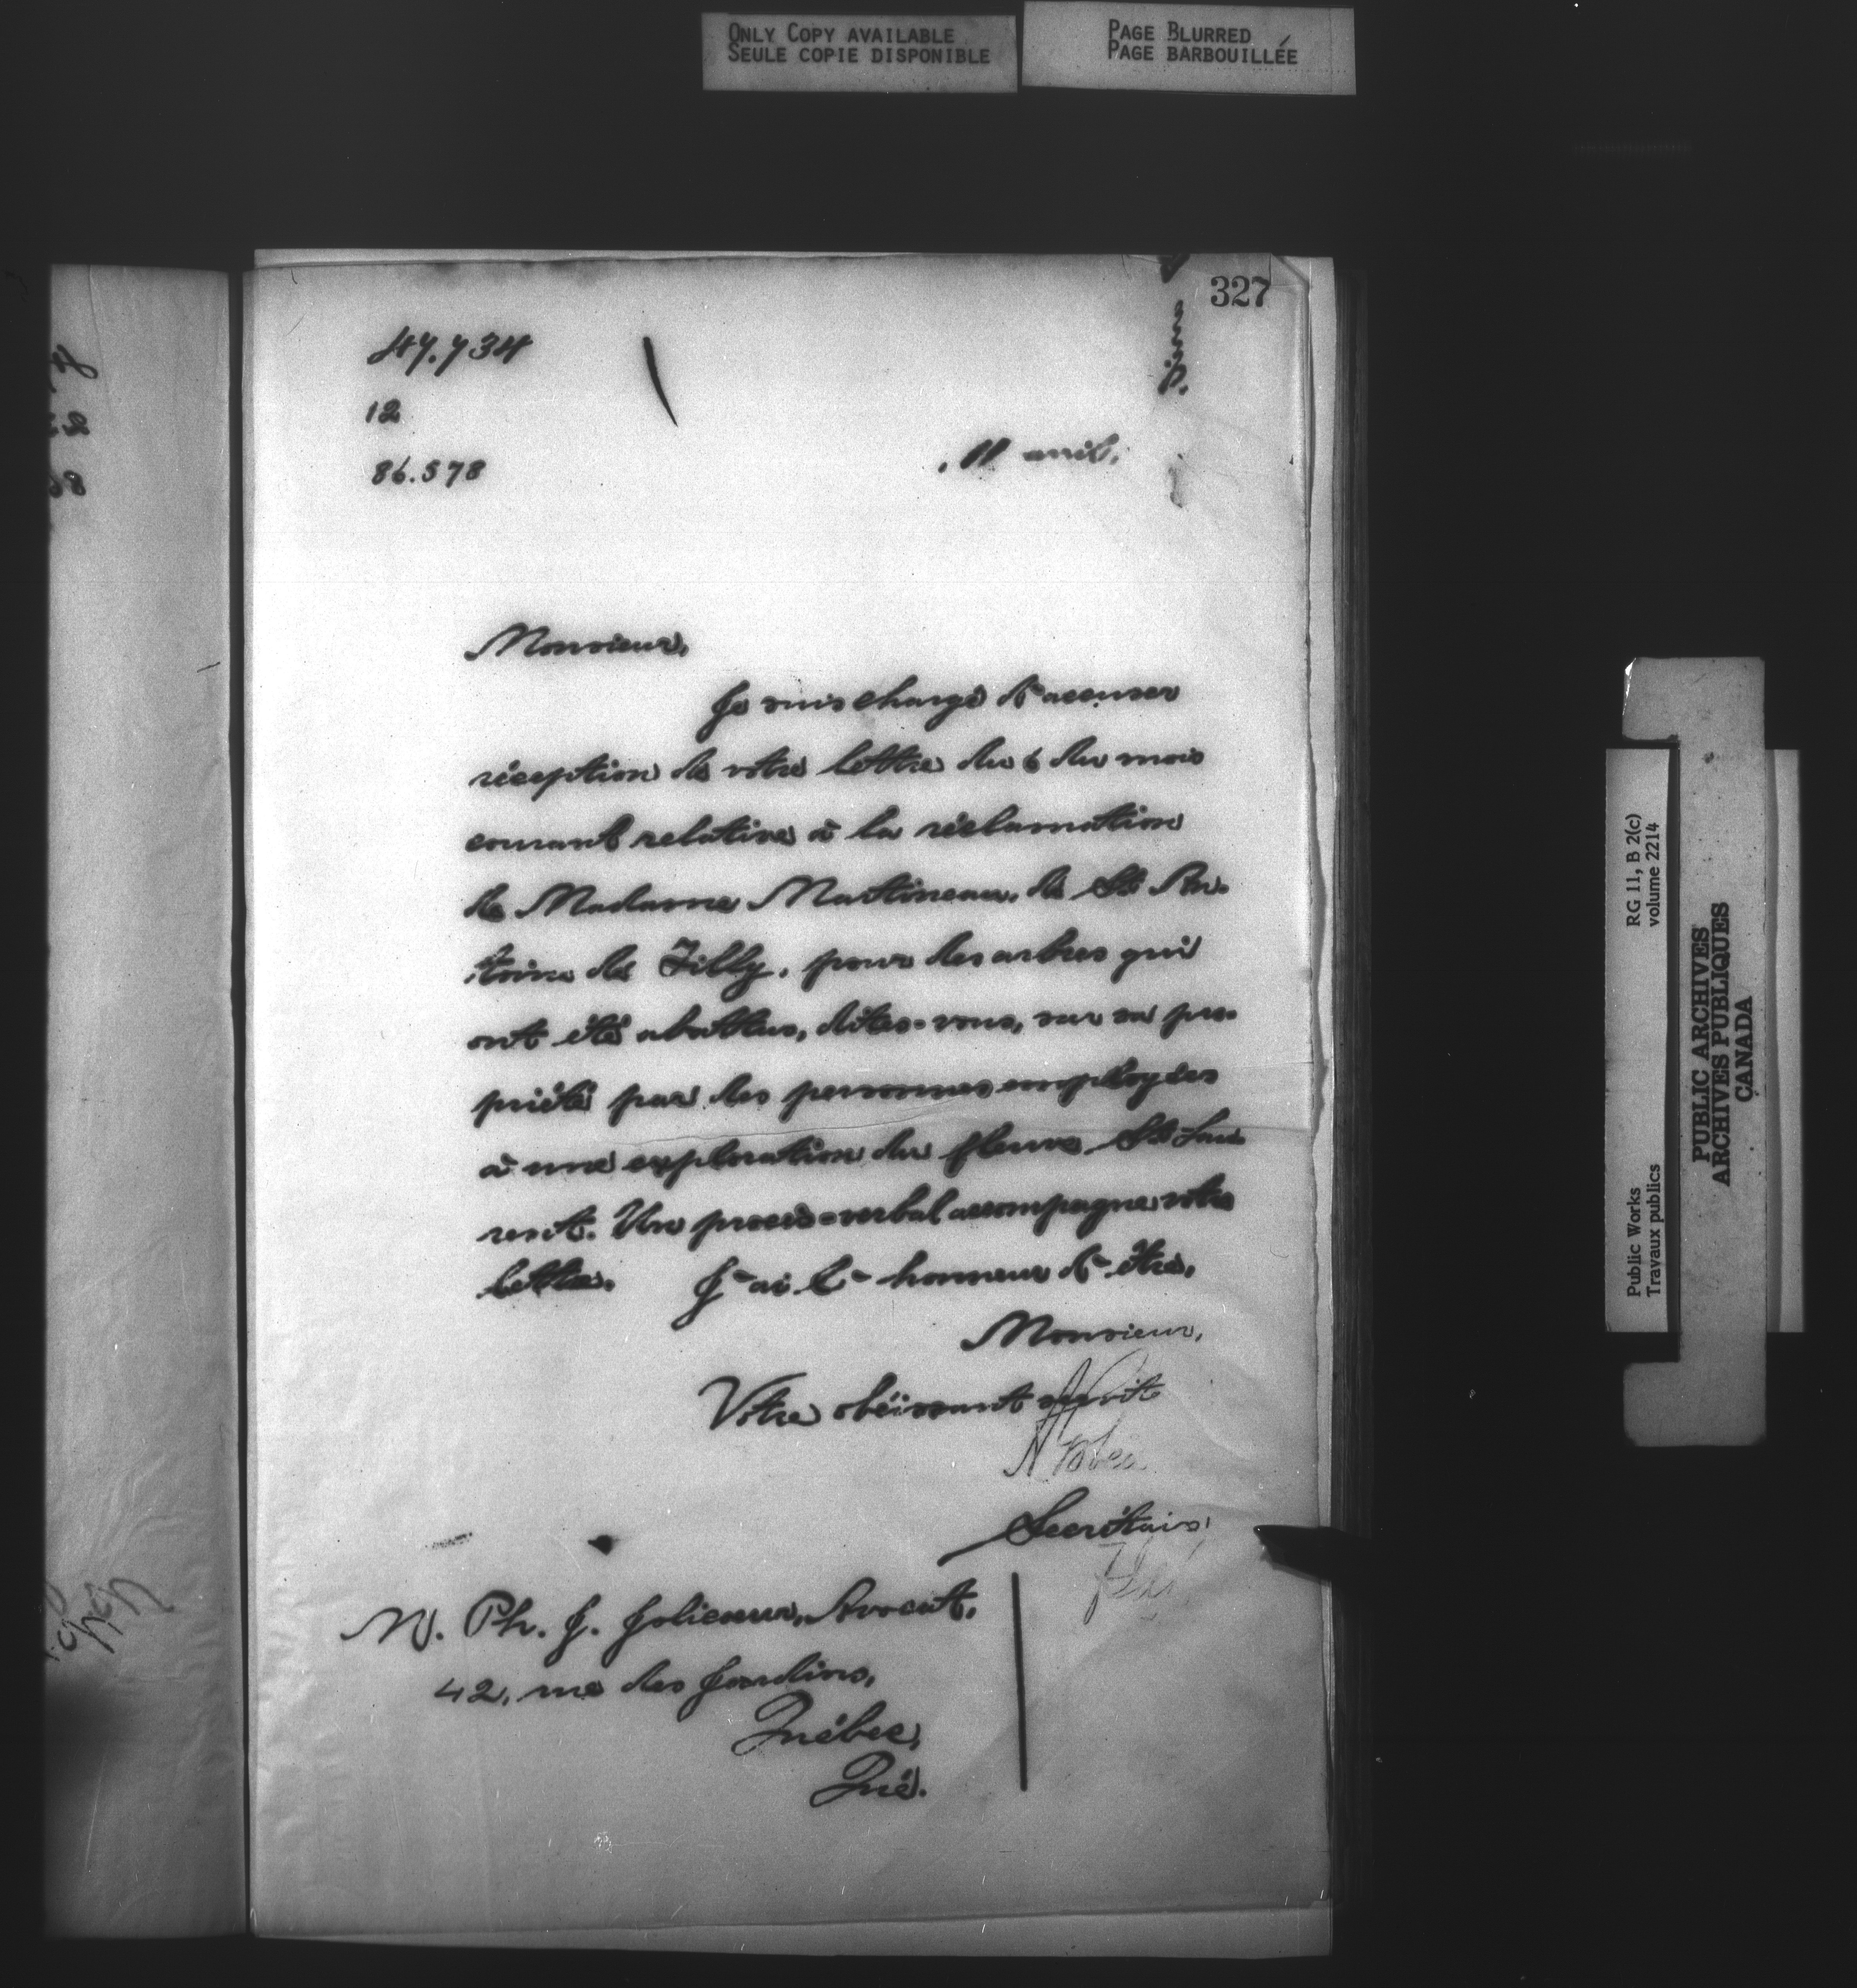 ONLY COPY AVAILABLE
SEULE COPIE DISPONIBLE
PAGE BLURRED
PAGE BARBOUILLÉE
327
47.734
12
86.578
11 avril,
Monsieur,
Je suis chargé d'accuser
réception de votre lettre du 6 du mois
courant relative à la réclamation
de Madame Martineau, de St. An-
toine de Tilly, pour des arbres qui
ont été abattus, dites-vous, sur sa pro-
priété par des personnes employées
à une exploration du fleuve St. Lau-
rent. Un procès-verbal accompagne votre
lettre. J'ai l'honneur d'être,
Monsieur,
Votre obéissant servit
Secrétaire
M. Ph. J. Jolicoeur, Avocat,
42, rue des Jardins,
Québec,
Qué.
Public Works
Travaux publics
RG 11, B 2(c)
volume 2214
PUBLIC ARCHIVES
ARCHIVES PUBLIQUES
CANADA